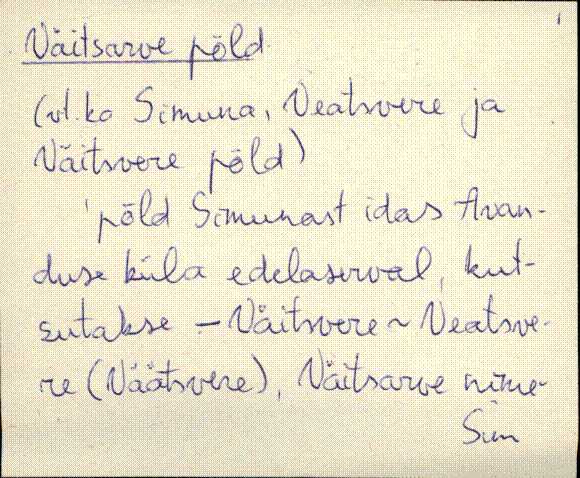 1
Väitsarve põld
(vt. ka Simuna, Veatsvere ja
Väitsvere põld)
põld Simunast idas Avan-
duse küla edelaserval, kut-
sutakse – Väitsvere ~ Veatsve-
re (Väätsvere), Väitsarve nime-
Sim